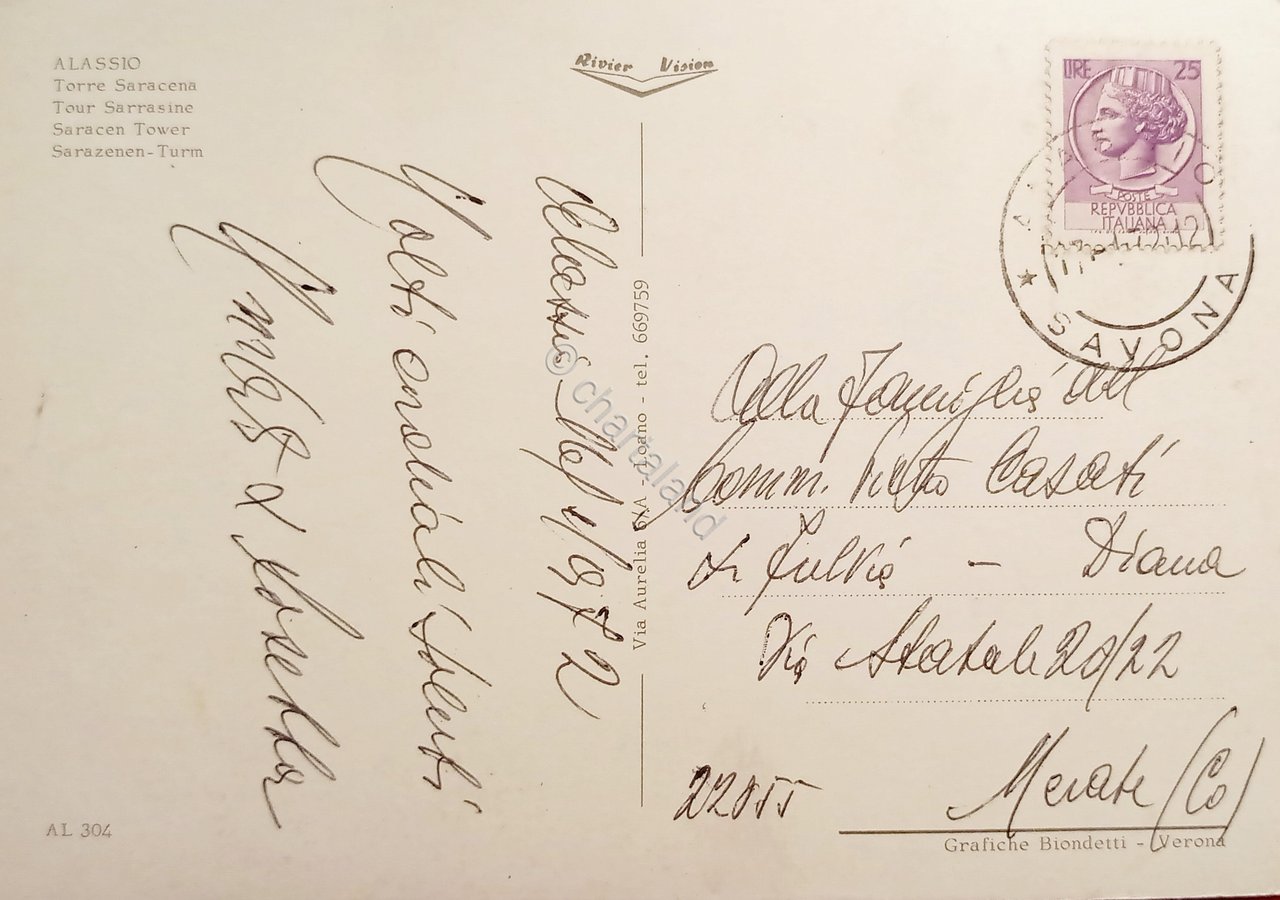 ALASSIO
Torre Saracena
Tour Sarrasine
Saracen Tower
Sarazenen-Turm
Rivier Vision
LIRE 25
POSTE
REPVBBLICA
ITALIANA
SAVONA
Alassio 1972
Molti cordiali saluti
Via Aurelia - Loano - tel. 669759
© chartaland
Alla Famiglia del
Comm. Casati
Fulvia - Diana
Via Statale 20/22
22055 Merate (Co)
AL 304
Grafiche Biondetti - Verona